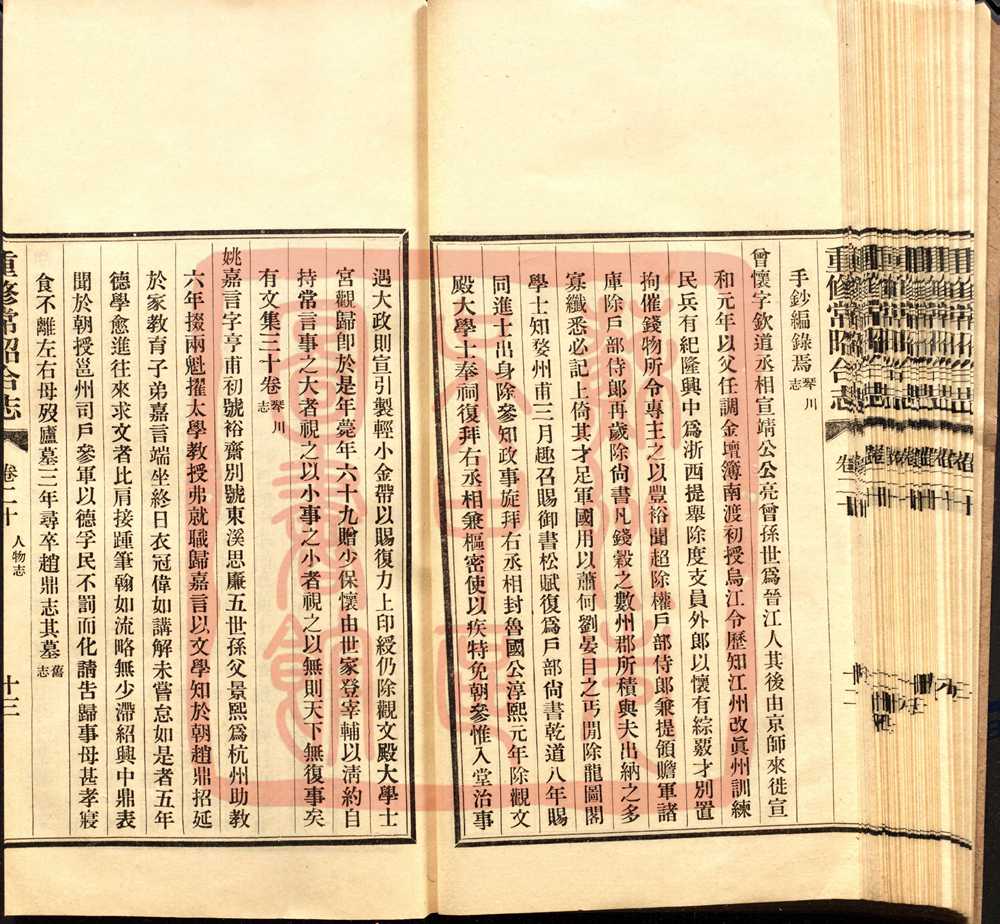 手鈔編錄焉琴川志
曾懷字欽道丞相宣靖公公亮曾孫世爲晉江人其後由京師來徙宣
和元年以父任調金壇簿南渡初授烏江令歷知江州改眞州訓練
民兵有紀隆興中爲浙西提舉除度支員外郎以懷有綜覈才別置
拘催錢物所令專主之以豐裕聞超除權戶部侍郎兼提領贍軍諸
庫除戶部侍郎再歲除尙書凡錢穀之數州郡所積與夫出納之多
寡纖悉必記上倚其才足軍國用以蕭何劉晏目之丐閒除龍圖閣
學士知婺州甫三月趣召賜御書松賦復爲戶部尙書乾道八年賜
同進士出身除參知政事旋拜右丞相封魯國公淳熙元年除觀文
殿大學士奉祠復拜右丞相兼樞密使以疾特免朝參惟入堂治事
遇大政則宣引製輕小金帶以賜復力上印綬仍除觀文殿大學士
宮觀歸卽於是年薨年六十九贈少保懷由世家登宰輔以淸約自
持當言事之大者視之以小事之小者視之以無則天下無復事矣
有文集三十卷琴川志
姚嘉言字亨甫初號裕齋別號東溪思廉五世孫父景熙爲杭州助教
六年掇兩魁擢太學教授弗就職歸嘉言以文學知於朝趙鼎招延
於家教育子弟嘉言端坐終日衣冠偉如講解未嘗怠如是者五年
德學愈進往來求文者比肩接踵筆翰如流略無少滯紹興中鼎表
聞於朝授邕州司戶參軍以德孚民不罰而化請告歸事母甚孝寢
食不離左右母歿廬墓三年尋卒趙鼎志其墓舊志
重修常昭合志 卷二十 人物志 十三